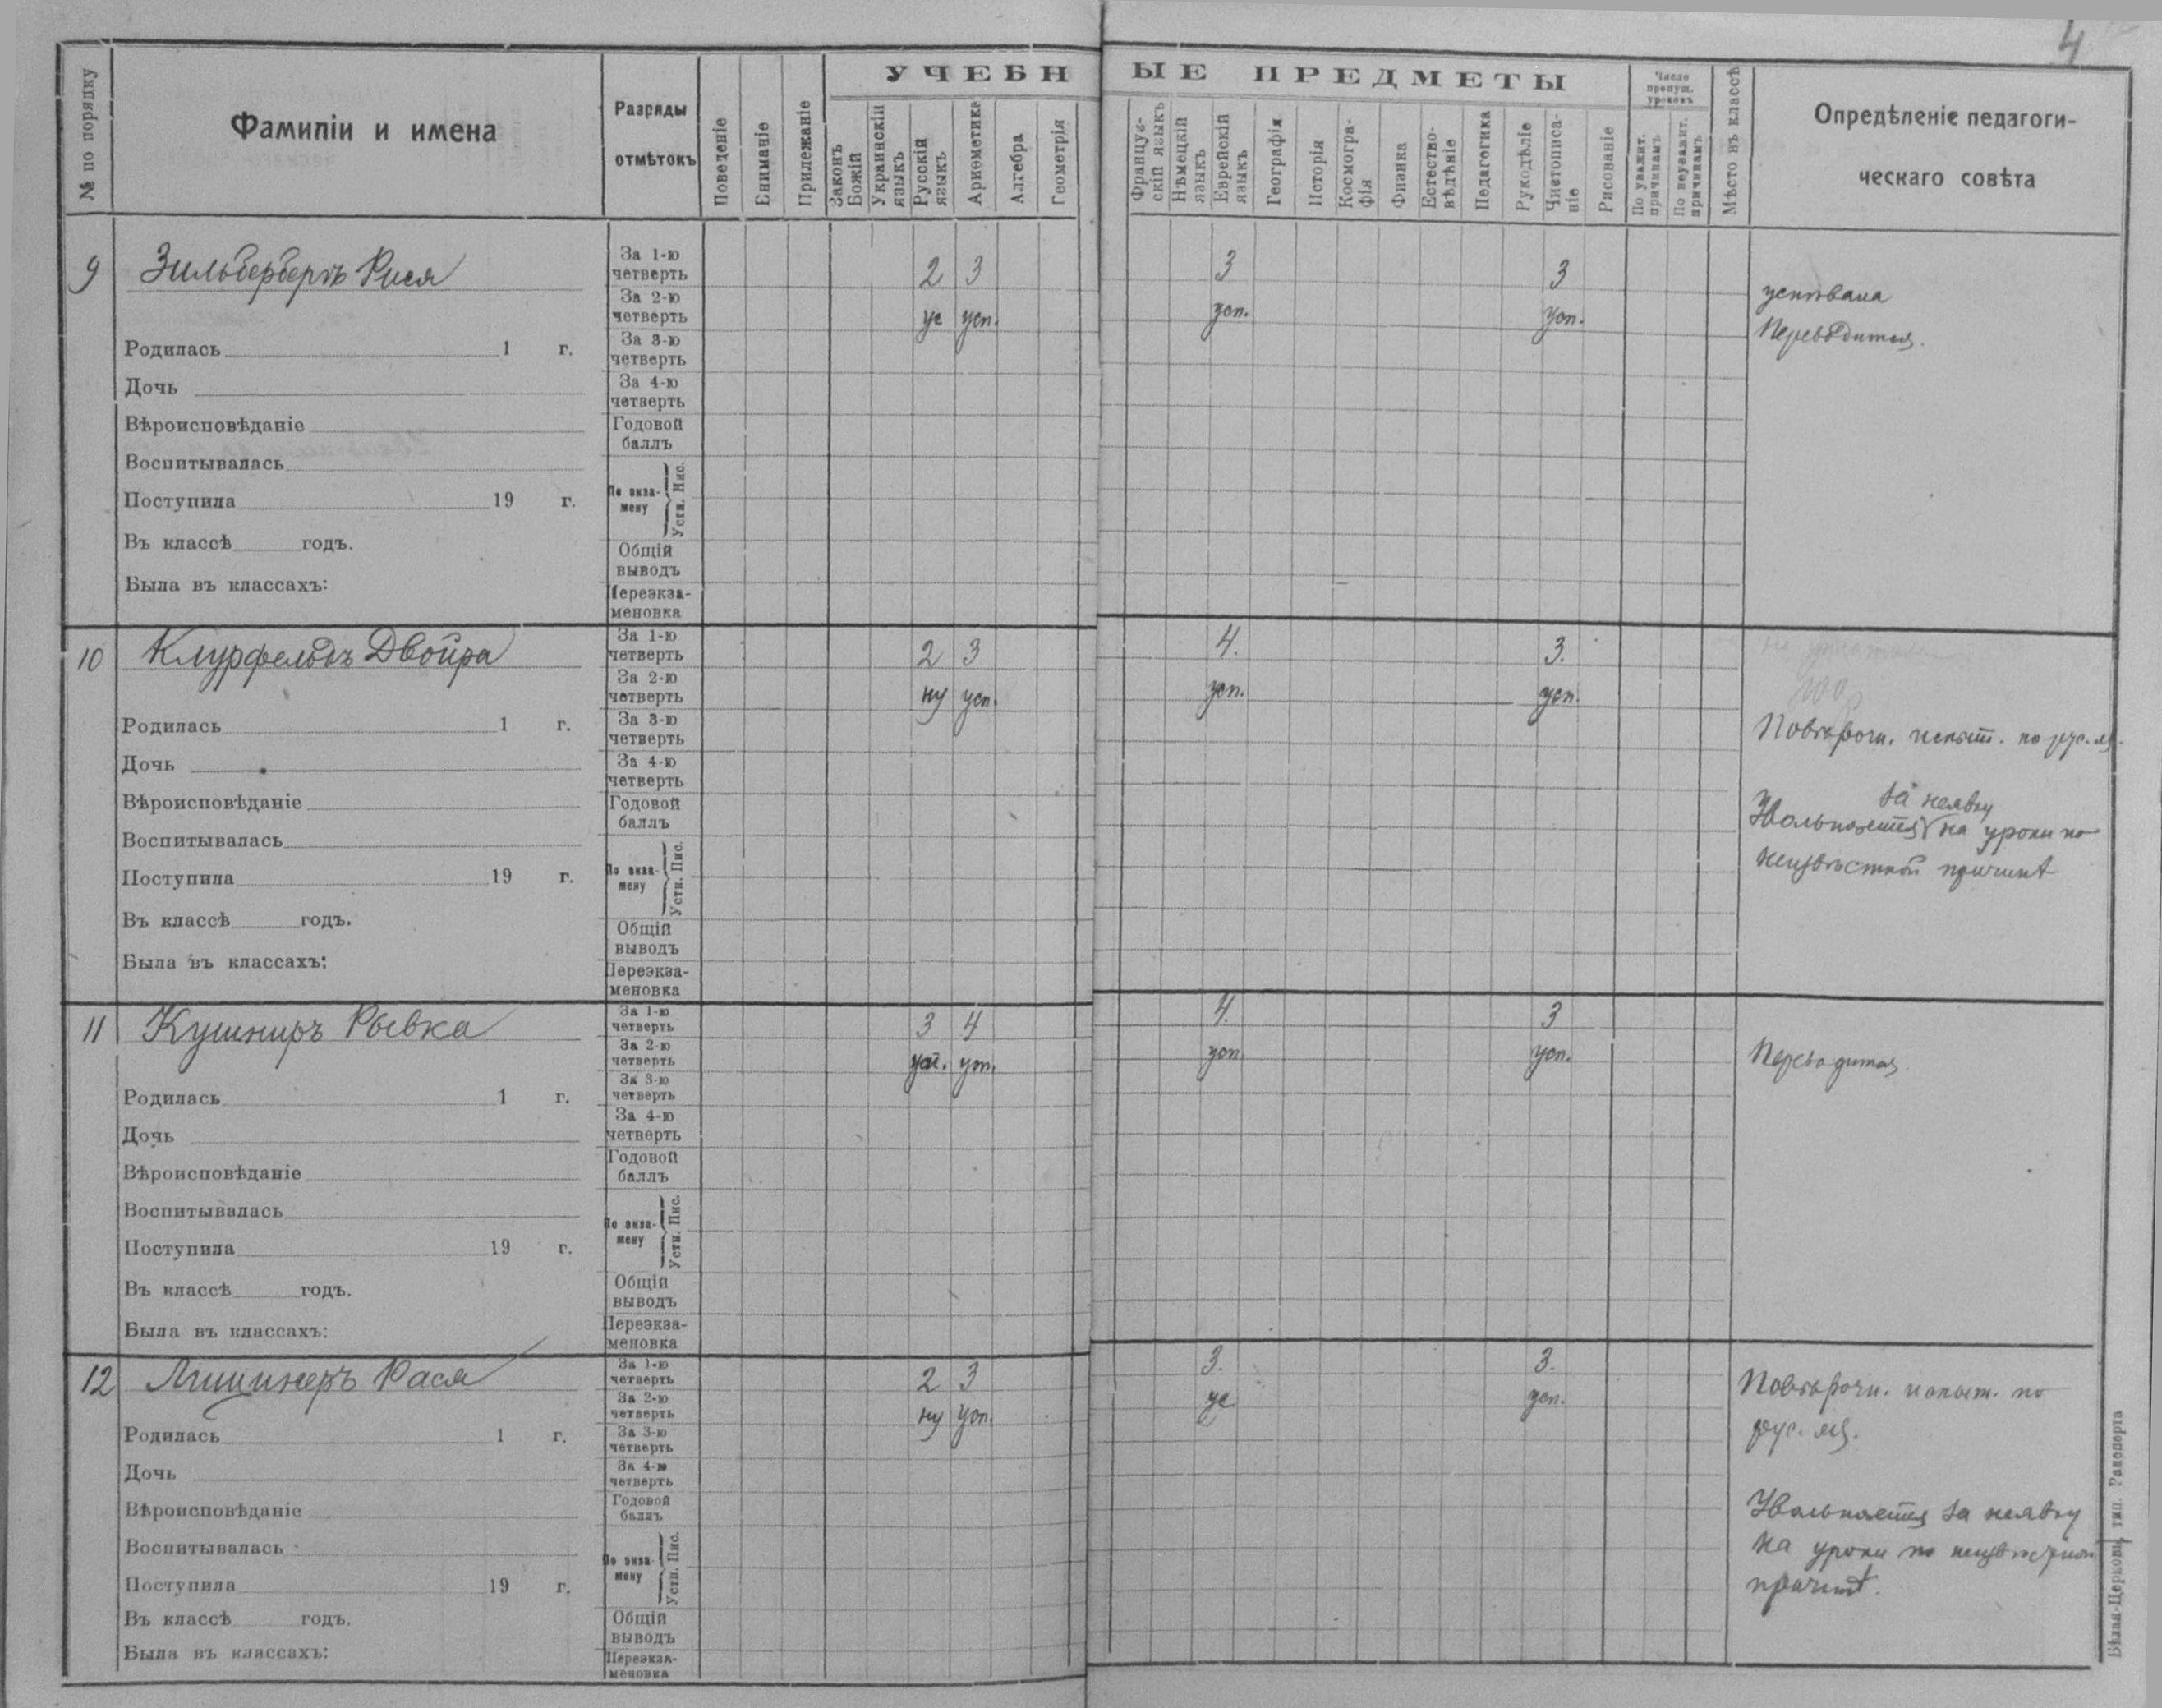 4
№ по порядку
Фамиліи и имена
Разряды отмѣтокъ
Поведеніе
Вниманіе
Прилежаніе
УЧЕБНЫЕ ПРЕДМЕТЫ
Законъ Божій
Украинскій языкъ
Русскій языкъ
Ариѳметика
Алгебра
Геометрія
Француз-скій языкъ
Нѣмецкій языкъ
Еврейскій языкъ
Географія
Исторія
Космогра-фія
Физика
Естество-вѣдѣніе
Педагогика
Рукодѣліе
Чистописа-ніе
Рисованіе
Число пропущ. уроковъ
По уважит. причинамъ
По неуважит. причинамъ
Мѣсто въ классѣ
Опредѣленіе педагоги-
ческаго совѣта
9 Зильбербергъ Рися
За 1-ю четверть 2 3 3 3
За 2-ю четверть ус усп. усп. усп.
успѣвала
Переводится.
Родилась 1 г.
За 3-ю четверть
Дочь
За 4-ю четверть
Вѣроисповѣданіе
Годовой баллъ
Воспитывалась
Поступила 19 г.
По экза-мену Устн. Пис.
Въ классѣ годъ.
Общій выводъ
Была въ классахъ:
Переэкза-меновка
10 Клурфельдъ Двойра
За 1-ю четверть 2 3 4. 3.
За 2-ю четверть ну усп. усп. усп.
Повѣрочн. испыт. по рус. яз.
Родилась 1 г.
За 3-ю четверть
Дочь
За 4-ю четверть
за неявку
Увольняется на уроки по
неизвѣстной причинѣ
Вѣроисповѣданіе
Годовой баллъ
Воспитывалась
Поступила 19 г.
По экза-мену Устн. Пис.
Въ классѣ годъ.
Общій выводъ
Была въ классахъ:
Переэкза-меновка
11 Кушниръ Рывка
За 1-ю четверть 3 4 4. 3
За 2-ю четверть усп. усп. усп. усп.
Переводится
Родилась 1 г.
За 3-ю четверть
Дочь
За 4-ю четверть
Вѣроисповѣданіе
Годовой баллъ
Воспитывалась
Поступила 19 г.
По экза-мену Устн. Пис.
Въ классѣ годъ.
Общій выводъ
Была въ классахъ:
Переэкза-меновка
12 Рася
За 1-ю четверть 2 3 3. 3.
За 2-ю четверть ну усп. ус усп.
Повѣрочн. испыт. по
рус. яз.
Родилась 1 г.
За 3-ю четверть
Дочь
За 4-ю четверть
Увольняется за неявку
на уроки по
причинѣ.
Вѣроисповѣданіе
Годовой баллъ
Воспитывалась
Поступила 19 г.
По экза-мену Устн. Пис.
Въ классѣ годъ.
Общій выводъ
Была въ классахъ:
Переэкза-меновка
Бѣлая-Церковь, тип. Рапопорта